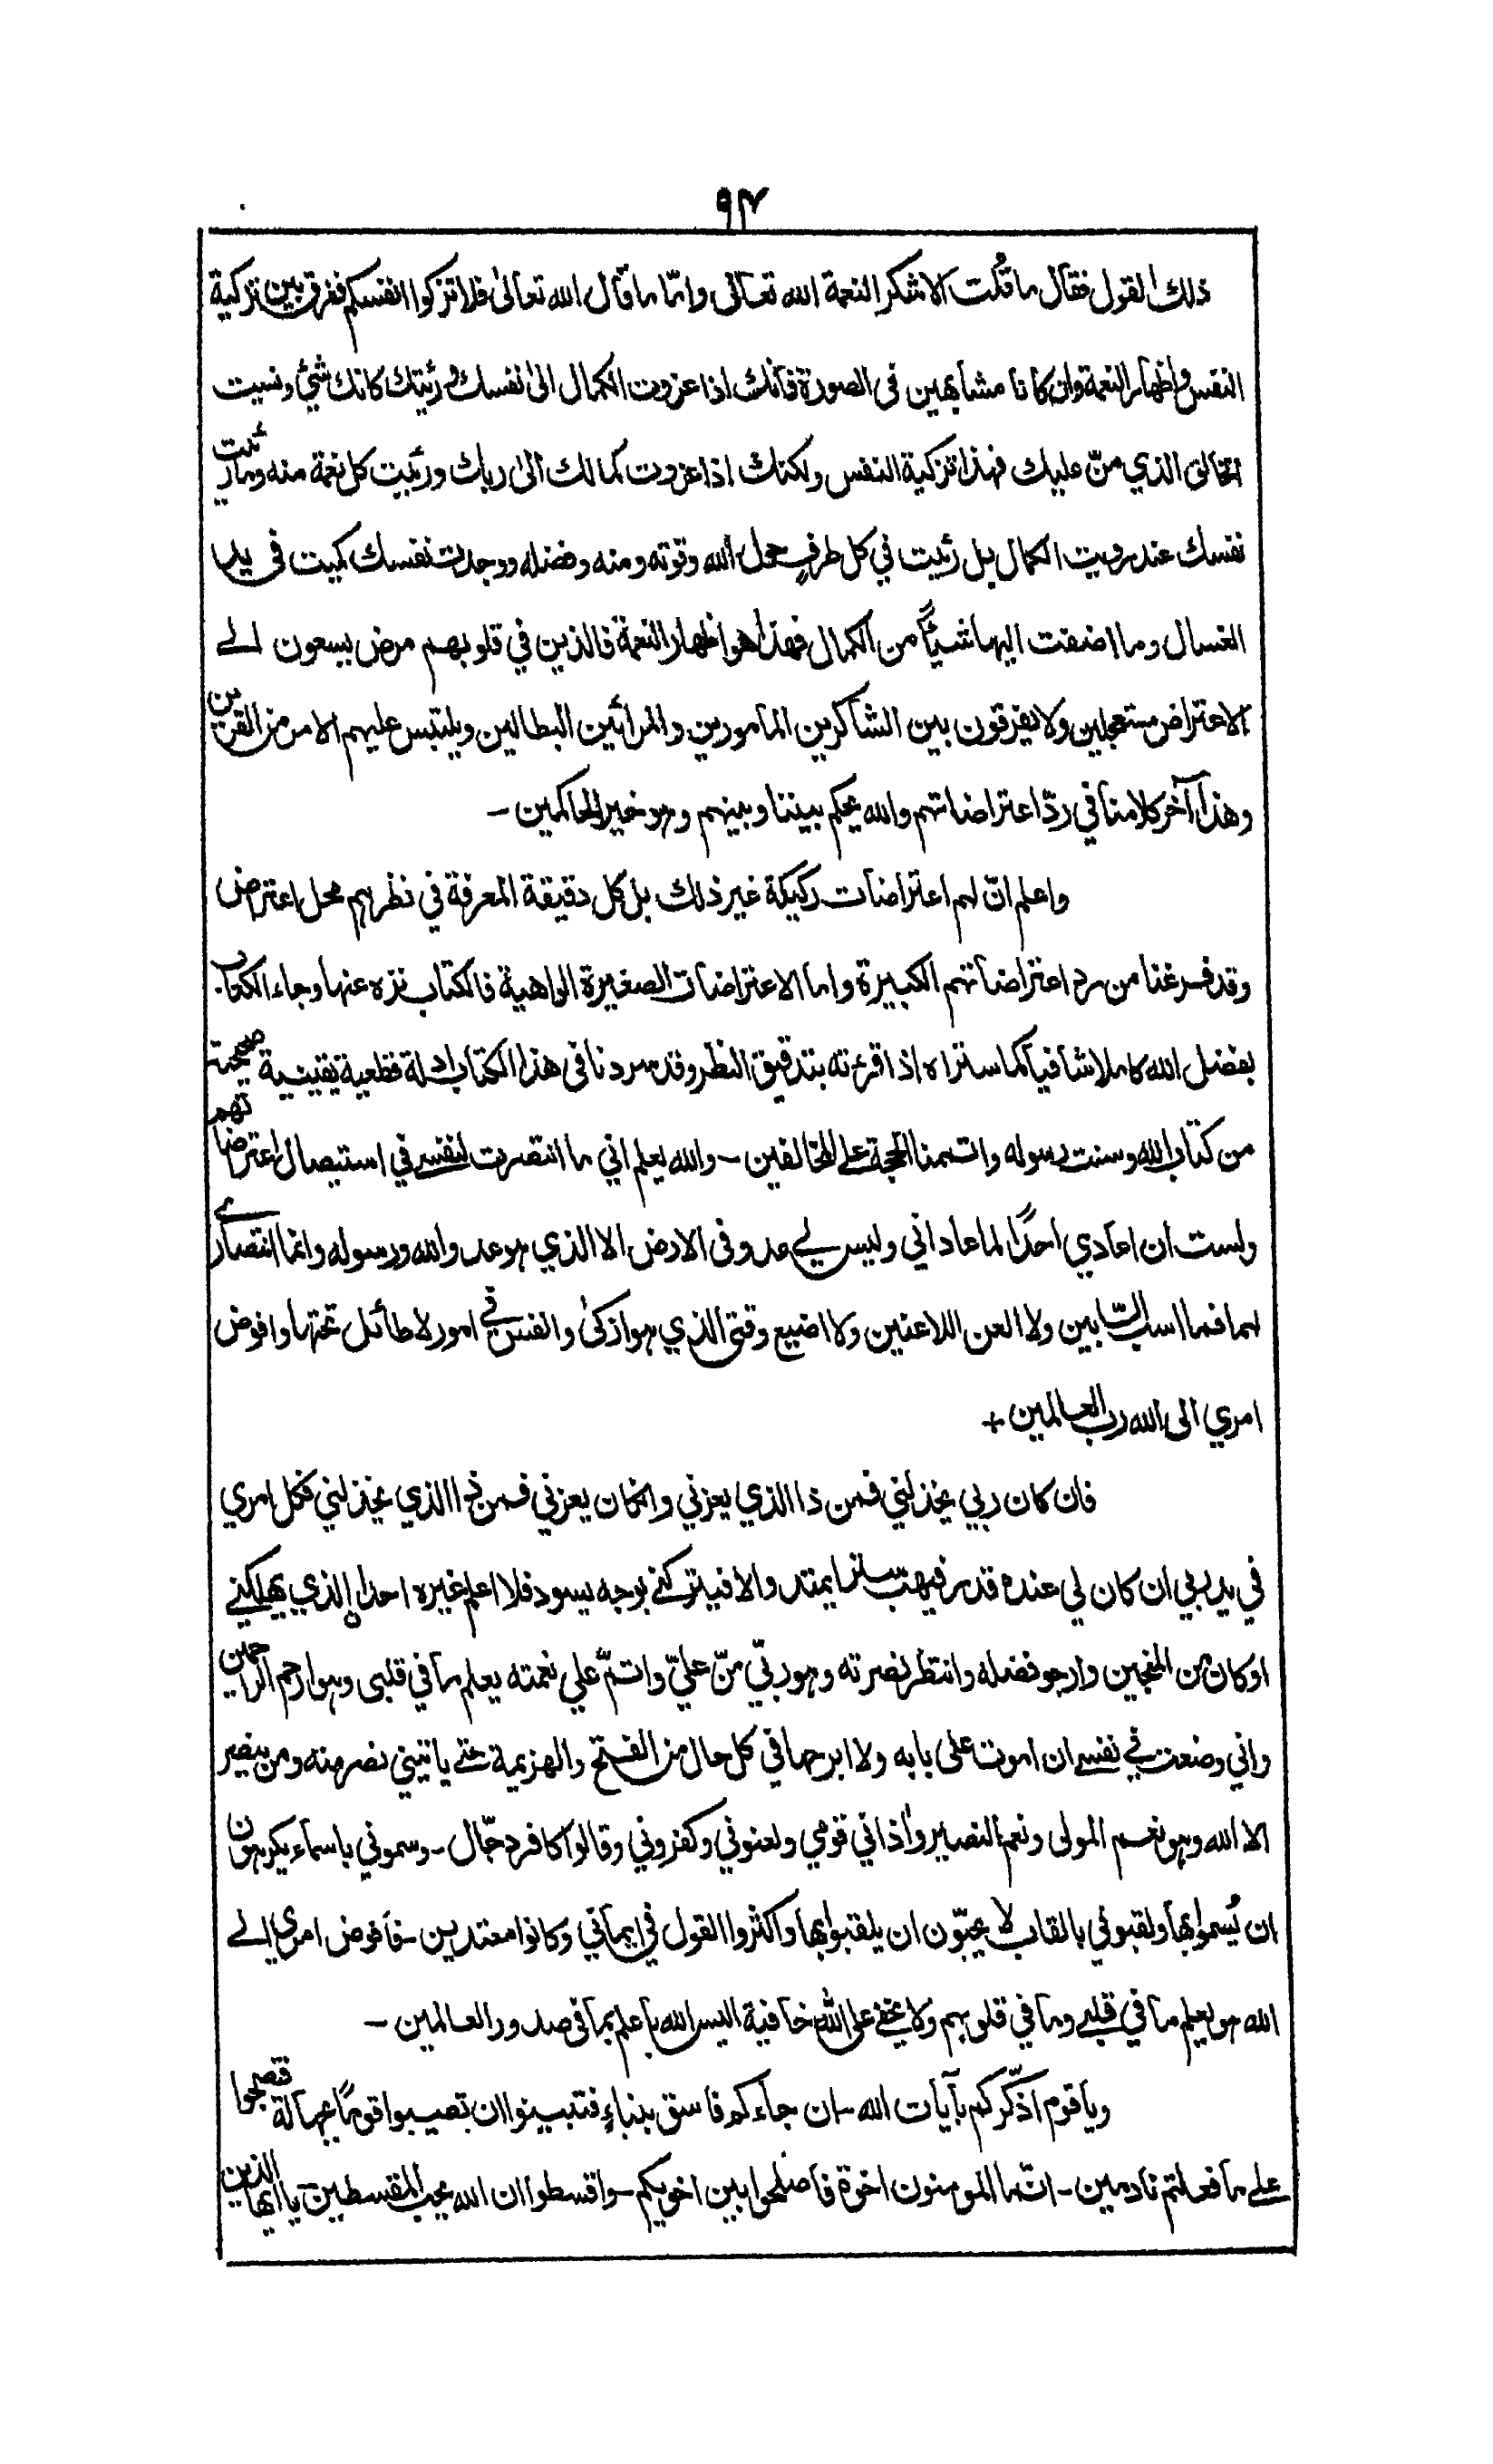 ٩٧
ذلك القول فقال ما قُلت الا شكرا لنعمة الله تعالى وامّا ما قال الله تعالىٰ فلا تزكوا انفسكم ففرق بين تزكية
النفس واظهار النعمة وان كانا مشابهين فى الصورة فانك اذا عزوت الكمال الىٰ نفسك ورئيتك كانك شيئ ونسيت
الخالق الذي منّ عليك فهذا تزكية النفس ولكنك اذا عزوت كمالك الىٰ ربك ورئيت كل نعمة منه وما رئيت
نفسك عند رويت الكمال بل رئيت في كل طرفٍ حول الله وقوته ومنه وفضله ووجدت نفسك كميت فى يد
الغسال وما اضفت اليها شيئًا من الكمال فهذا هو اظهار النعمة فالذين في قلوبهم مرض يسعون الے
الاعتراض مستعجلين ولا يفرقون بين الشاكرين المامورين والمرائين البطالين ويلتبس عليهم الامر من القرين
وهذا آخر كلامنا في ردّ اعتراضاتهم والله يحكم بيننا وبينهم وهو خير الحاكمين -
واعلم انّ لهم اعتراضات ركيكة غير ذلك بل كل دقيقة المعرفة في نظرهم محل اعتراض
وقد فرغنا من رد اعتراضاتهم الكبيرة واما الاعتراضات الصغيرة الواهية فالكتاب نزه عنها وجاء الكتاب
بفضل الله كاملا شافيا كما ستراه اذا قرءته بتدقيق النظر وقد سردنا فى هذا الكتاب ادلة قطعية يقينية صحيحة
من كتاب الله وسنت رسوله واتممنا الحجة علے المخالفين - والله يعلم اني ما انتصرت لنفسے في استيصال اعتراضاتهم
ولست ان اعادي احدًا لما عاداني وليس لے عدو فى الارض الا الذي هو عدو الله ورسوله وانما انتصارے
لهما فما اسبّ السّابين ولا العن اللاعنين ولا اضيع وقتى الذي هو ازكىٰ وانفس فے امور لا طائل تحتها وافوض
امري الى الله رب العالمين +
فان كان ربي يخذلني فمن ذا الذي يعزني وان كان يعزني فمن ذا الذي يخذلني فكل امري
في يد ربي ان كان لي عنده قدر فيهب سترا يمتد والا فيتركنے بوجه يسود فلا اعلم غيره احدا الذي يهلكنے
او كان من المنجين وارجو فضله وانتظر نصرته وهو ربّي منّ عليّ واتمّ علي نعمته يعلم ما في قلبى وهو ارحم الراحمين
واني وضعت فے نفسے ان اموت على بابه ولا ابرحها في كل حال من الفتح والهزيمة حتے ياتيني نصر منه ومن ينصر
الا الله وهو نعم المولى ونعم النصير واٰذاني قومي ولعنوني وكفروني وقالوا كافر دجّال - وسموني باسماء يكرهون
ان يُسموا بها ولقبوني بالقاب لا يحبّون ان يلقبوا بها واكثروا القول في ايماني وكانوا معتدين - فافوض امري الے
الله هو يعلم ما في قلبے وما في قلوبهم ولا يخفے على الله خافية اليس الله باعلم بما فى صدور العالمين -
ويا قوم اذّكركم بآيات الله - ان جاءكم فاسق بنباءٍ فتبينوا ان تصيبوا قومًا بجهالة فتصبحوا
علے ما فعلتم نادمين - انّما المومنون اخوة فاصلحوا بين اخويكم - واقسطوا ان الله يحب المقسطين - يا ايها الذين